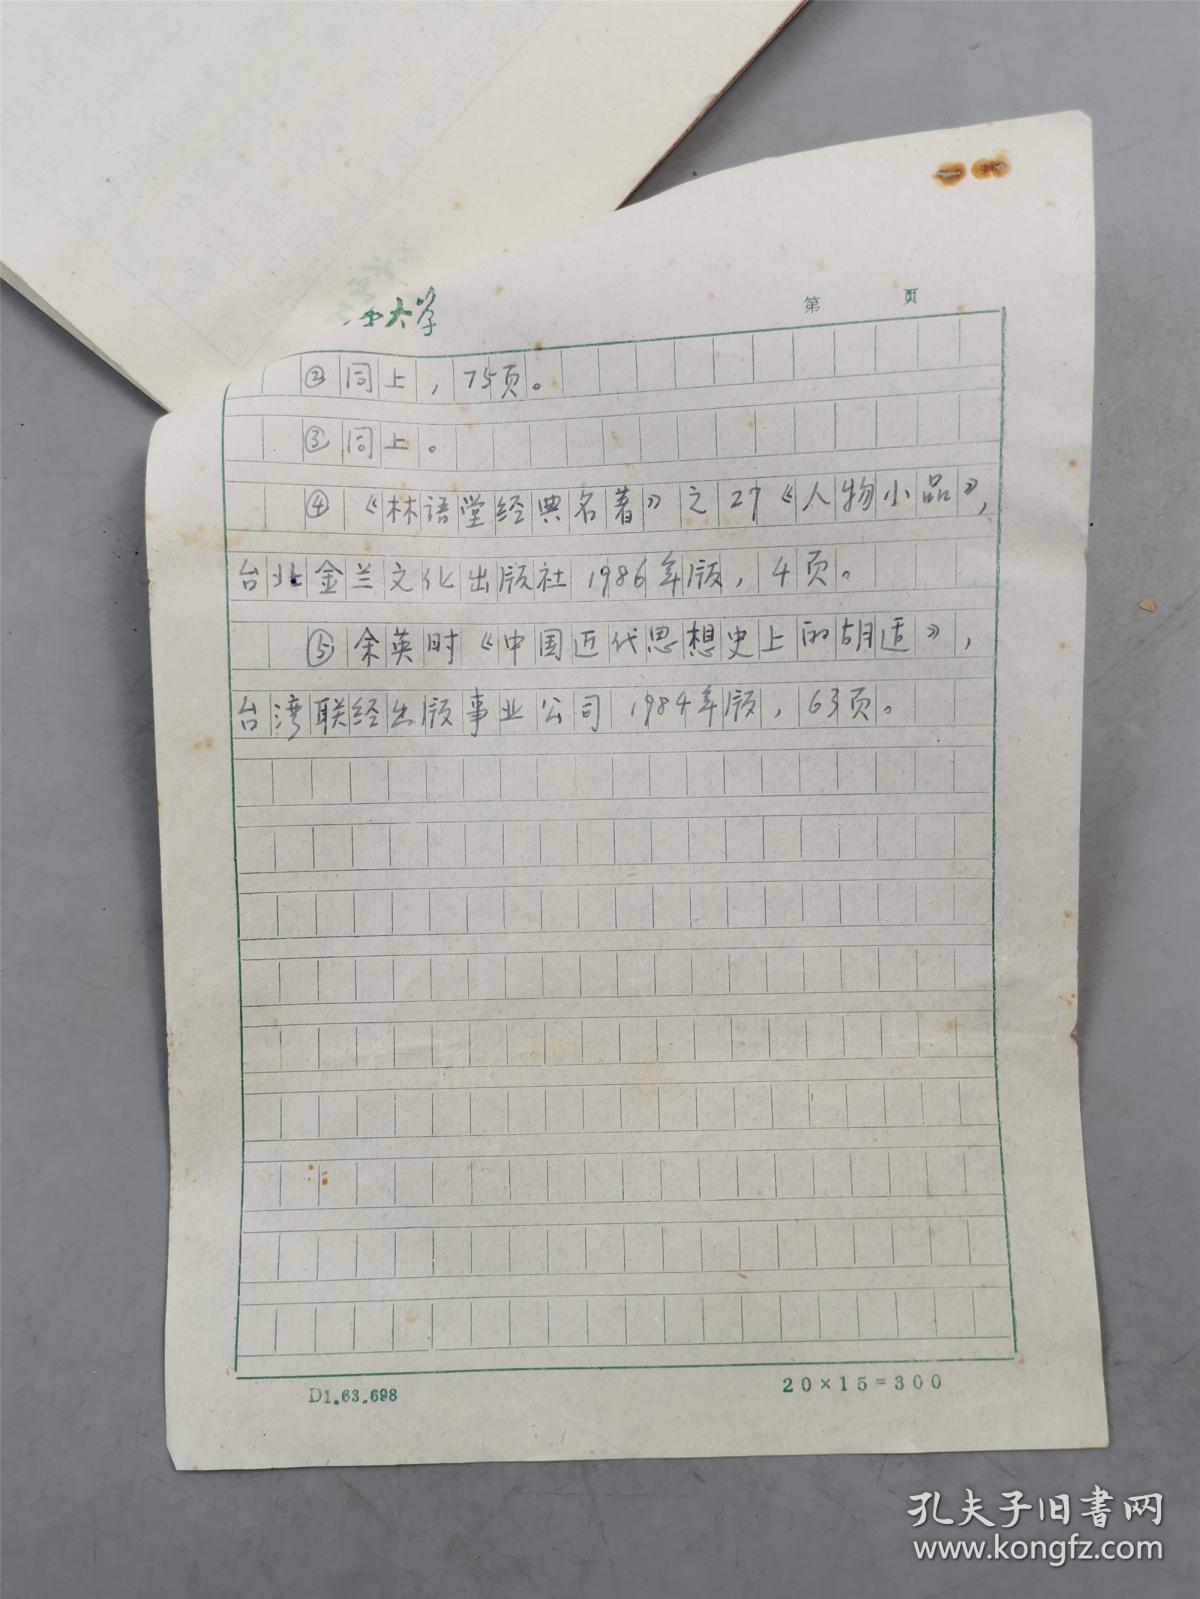 大学
第 页
②同上，75页。
③同上。
④《林语堂经典名著》之27《人物小品》，
台北金兰文化出版社1986年版，4页。
⑤余英时《中国近代思想史上的胡适》，
台湾联经出版事业公司1984年版，63页。
D1.63.698
20×15=300
孔夫子旧书网
www.kongfz.com